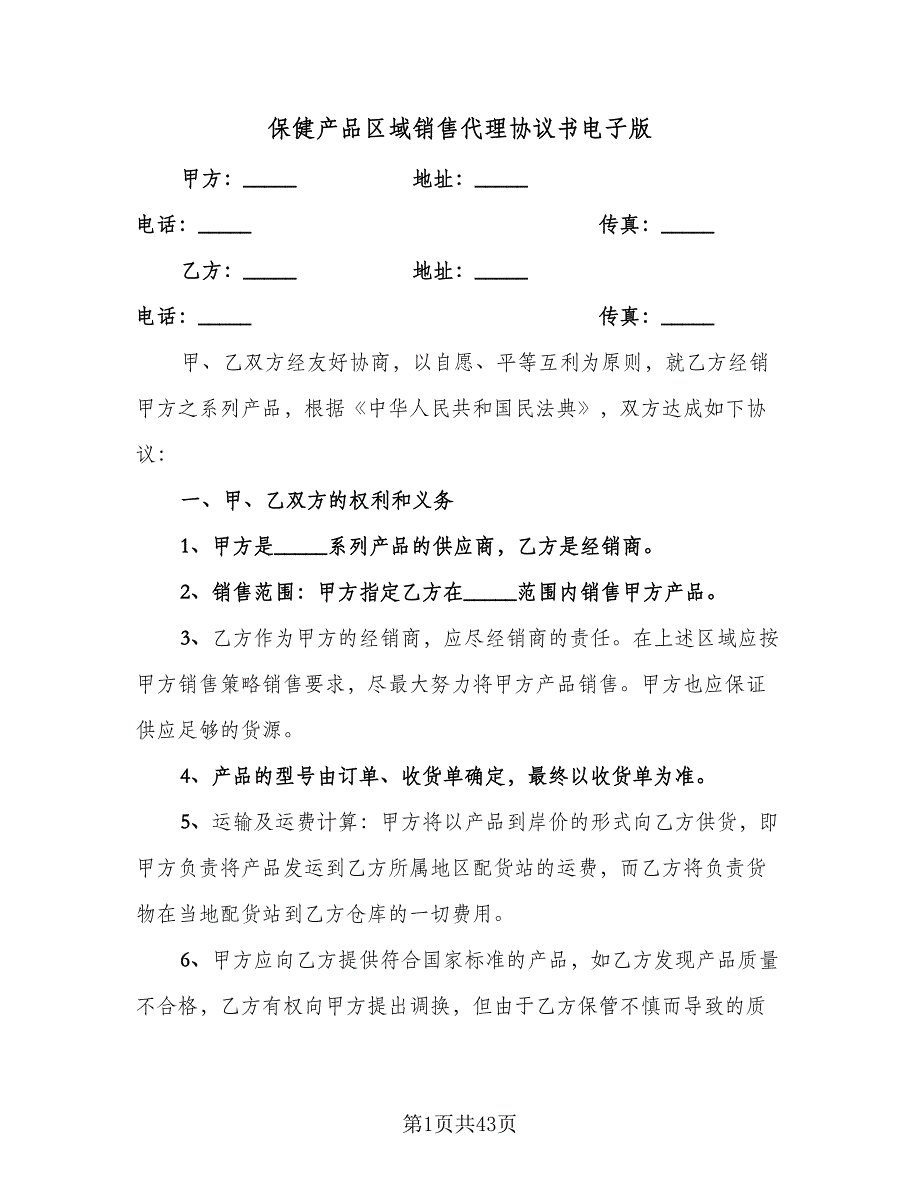 保健产品区域销售代理协议书电子版
甲方：_____ 地址：_____
电话：_____ 传真：_____
乙方：_____ 地址：_____
电话：_____ 传真：_____
甲、乙双方经友好协商，以自愿、平等互利为原则，就乙方经销
甲方之系列产品，根据《中华人民共和国民法典》，双方达成如下协
议：
一、甲、乙双方的权利和义务
1、甲方是_____系列产品的供应商，乙方是经销商。
2、销售范围：甲方指定乙方在_____范围内销售甲方产品。
3、乙方作为甲方的经销商，应尽经销商的责任。在上述区域应按
甲方销售策略销售要求，尽最大努力将甲方产品销售。甲方也应保证
供应足够的货源。
4、产品的型号由订单、收货单确定，最终以收货单为准。
5、运输及运费计算：甲方将以产品到岸价的形式向乙方供货，即
甲方负责将产品发运到乙方所属地区配货站的运费，而乙方将负责货
物在当地配货站到乙方仓库的一切费用。
6、甲方应向乙方提供符合国家标准的产品，如乙方发现产品质量
不合格，乙方有权向甲方提出调换，但由于乙方保管不慎而导致的质
第1页共43页